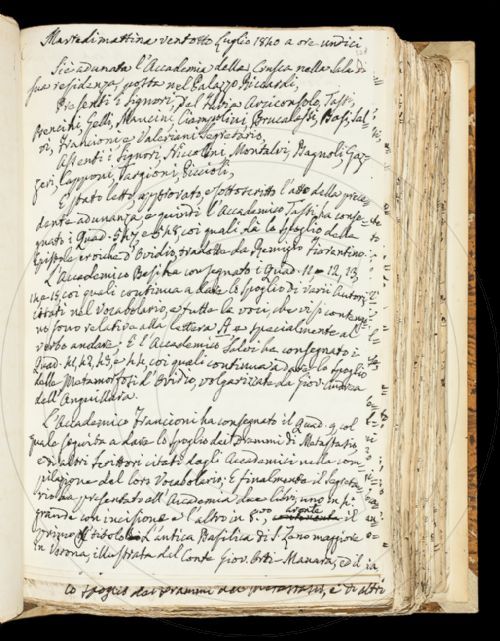 Martedì mattina ventotto Luglio 1840 a ore undici
Si è adunata l'Accademia della Crusca nella Sala di
sua residenza posta nel Palazzo Riccardi.
Presenti i Signori, Del Furia Arciconsolo, Tassi,
Bencini, Gelli, Mancini, Ciampolini, Brucalassi, Basi, Sal
vi, Francioni e Valeriani Segretario,
Assenti i Signori, Niccolini, Montalvi, Bagnoli, Gaz
zeri, Capponi, Targioni, Piccioli,
È stato letto, approvato, e sottoscritto l'atto della prece
dente adunanza, e quindi l'Accademico Tassi ha conse
gnati i Quad. 5 h 7, e 5 h 8, coi quali dà lo spoglio delle
Epistole eroiche d'Ovidio, tradotte da Remigio Fiorentino.
L'Accademico Basi ha consegnato i Quad. 11 12, 13,
14, e 15, coi quali continua a dare lo spoglio di varii Autori
citati nel Vocabolario, e tutte le voci, che vi si conten
no sono relative alla lettera A e specialmente al
verbo andare; E l'Accademico Salvi ha consegnato i
Quad. 41, 42, 43, e 44, coi quali continua a dare lo spoglio
delle Metamorfosi d'Ovidio, volgarizzate da Giov. Andrea
dell'Anguillara.
L'Accademico Francioni ha consegnato il Quad. 9 col
quale seguita a dare lo spoglio dei Drammi di Metastasio,
e di altri Scrittori citati dagli Accademici nella com
pilazione del loro Vocabolario; E finalmente il Segreta
rio ha presentato all'Accademia due libri, uno in f.
grande con incisione e l'altro in 8.vo, avente il
primo il titolo L'antica Basilica di S. Zeno maggiore
in Verona, illustrata dal Conte Giov. Orti-Manara, ed il
lo spoglio dei Drammi del Metastasio, e di altri